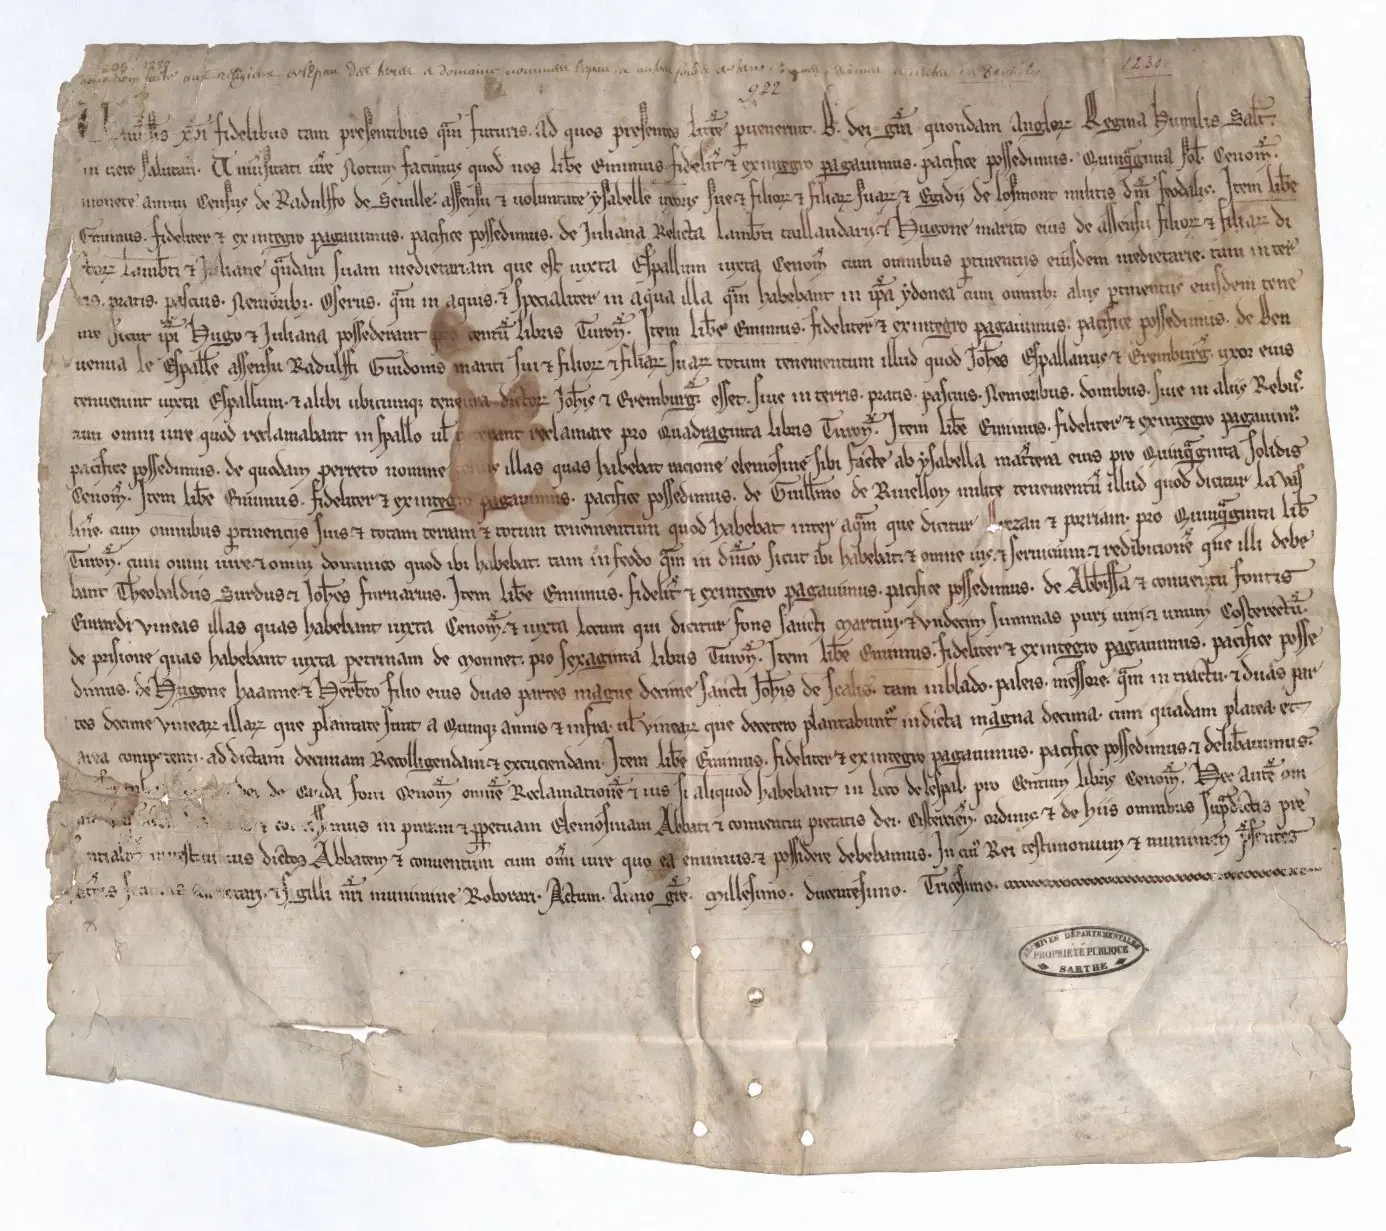 1230.
922
Uniṽsis xp̃i fidelibus tam presentibus q̃m futuris. ad quos presentes litt̃e p̃venerint. B. dei gr̃a quondam Anglorꝝ Regina humilis Salt̃
in vero salutari. Uniṽsitati vr̃e Notum facimus quod nos lib̃e Emimus. fidelit̃ ⁊ ex integro pagavimus. pacifice possedimus. Quinq̃ginta sol̃ Cenom̃.
monete annui Census de Radulfo de Seville. assensu ⁊ voluntate ysabelle uxoris sue ⁊ filiorꝝ ⁊ filiarꝝ suarꝝ ⁊ Egidij de losmont militis dñi feodalis. Item lib̃e
Emimus. fideliter ⁊ ex integro pagavimus. pacifice possedimus. de Juliana Relicta Lamb̃ti taillandarij ⁊ Hugone marito eius de assensu filiorꝝ ⁊ filiarꝝ di
ctorꝝ Lamb̃ti ⁊ Juliane q̃ndam suam medietariam que est iuxta Espallum iuxta Cenom̃ cum omnibus p̃tinentijs eiusdem medietarie. tam in ter
ris. pratis. pascuis. Nemorib; Oseriis. q̃m in aquis. ⁊ specialiter in aqua illa q̃m habebant in ip̃a ydonea cum omnib; alijs p̃tinentijs eiusdem tene
ure sicut ip̃i Hugo ⁊ Juliana possederant pro centũ libris Turoñ. Item lib̃e Emimus. fideliter ⁊ ex integro pagavimus. pacifice possedimus. de Ben
venua le Espall̃e assensu Radulfi Guidonis mariti sui ⁊ filiorꝝ ⁊ filiarꝝ suarꝝ totum tenementum illud quod Joh̃es Espallanus ⁊ Eremburg̃. uxor eius
tenuerunt iuxta Espallum. ⁊ alibi ubicumq; tenetura dictorꝝ Joh̃is ⁊ Eremburg̃. esset. sive in terris. pratis. pascuis. Nemoribus. domibus. sive in alijs Rebu᷒.
cum omni iure quod reclamabant in spallo ul̃ reclamare pro Quadraginta libris Turoñ. Item lib̃e Emimus. fideliter ⁊ ex integro pagavim᷒.
pacifice possedimus. de quodam perreto nomine illas quas habebat racione elemosine sibi facte ab ysabella mat̃tera eius pro Quinq̃ginta solidis
Cenom̃. Item lib̃e Emimus. fideliter ⁊ ex integro pagavimus. pacifice possedimus. de Guill̃mo de Ruellon milite tenementũ illud quod dicitur la vas
line. cum omnibus p̃tinencijs suis ⁊ totam terram ⁊ totum tenementum quod habebat inter aq̃m que dicitur ⁊ pro Quinq̃ginta lib̃
Turoñ. cum omni iure ⁊ omni dominico quod ibi habebat. tam in feodo q̃m in dñico sicut ibi habebat. ⁊ omne ius ⁊ servicium ⁊ redibicionẽ que illi debe
bant Theobaldus Surdus ⁊ Joh̃es furnarius. Item lib̃e Emimus. fidelit̃ ⁊ ex integro pagavimus. pacifice possedimus. de Abb̃issa ⁊ conventu fontis
Evrardi vineas illas quas habebant iuxta Cenom̃. ⁊ iuxta locum qui dicitur fons sancti martini. ⁊ undecim summas puri vini ⁊ unum Costerectũ
de prisione quas habebant iuxta petrinam de monnet. pro sexaginta libris Turoñ. Item lib̃e Emimus. fideliter ⁊ ex integro pagavimus. pacifice posse
dimus. de Hugone haanne ⁊ Herb̃to filio eius duas partes magne decime sancti Joh̃is de Scalis. tam in blado. paleis. messore. q̃m in tractu. ⁊ duas par
tes decime vinearꝝ illarꝝ que plantate sunt a Quinq; annis ⁊ infra. ul̃ vinearꝝ que decetero plantabunt᷑ in dicta magna decima. cum quadam platea et
area competenti. ad dictam decimam Recolligendam ⁊ excuciendam. Item lib̃e Emimus. fideliter ⁊ ex integro pagavimus. pacifice possedimus. ⁊ delib̃avimus.
de Guida forti Cenom̃ omnẽ Reclamationẽ ⁊ ius si aliquod habebant in loco de lespal. pro Centum libris Cenom̃. Hec autẽ om
⁊ in puram ⁊ p̃petuam Elemosinam Abbati ⁊ conventui pietatis dei. Cisterciẽn. ordinis ⁊ de hiis omnibus sup̃dictis pre
dictos Abbatem ⁊ conventum cum om̃i iure quo ea emimus. ⁊ possidere debebamus. In cui᷒ Rei testimonium ⁊ munimen p̃sentes
⁊ sigilli nr̃i munimine Roborari. Actum. Anno gr̃e. Millesimo. ducentesimo. Tricesimo.
ARCHIVES DÉPARTEMENTALES
PROPRIÉTÉ PUBLIQUE
SARTHE